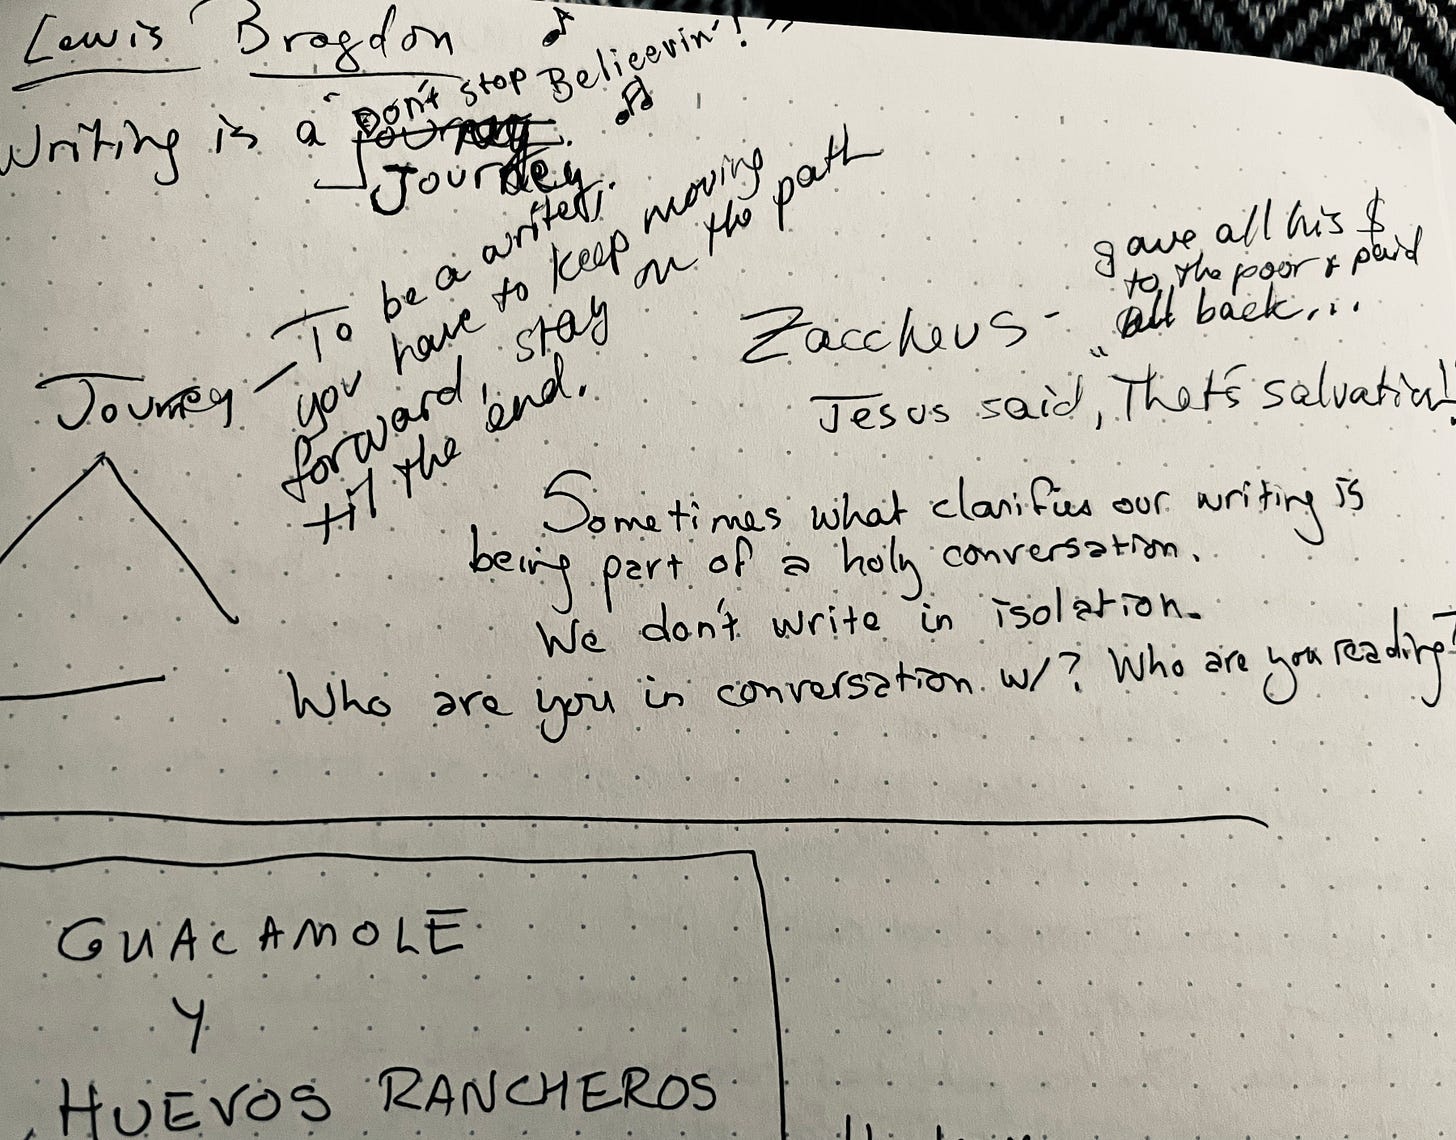 Lewis Brogdon
"Don't stop Believin'!"
Writing is a
Journey
Journey - To be a writer,
you have to keep moving
forward, stay on the path
til the end.
Zaccheus - gave all his $
to the poor & paid
all back...
Jesus said, "That's salvation!
Sometimes what clarifies our writing is
being part of a holy conversation.
We don't write in isolation.
Who are you in conversation w/? Who are you reading?
GUACAMOLE
Y
HUEVOS RANCHEROS